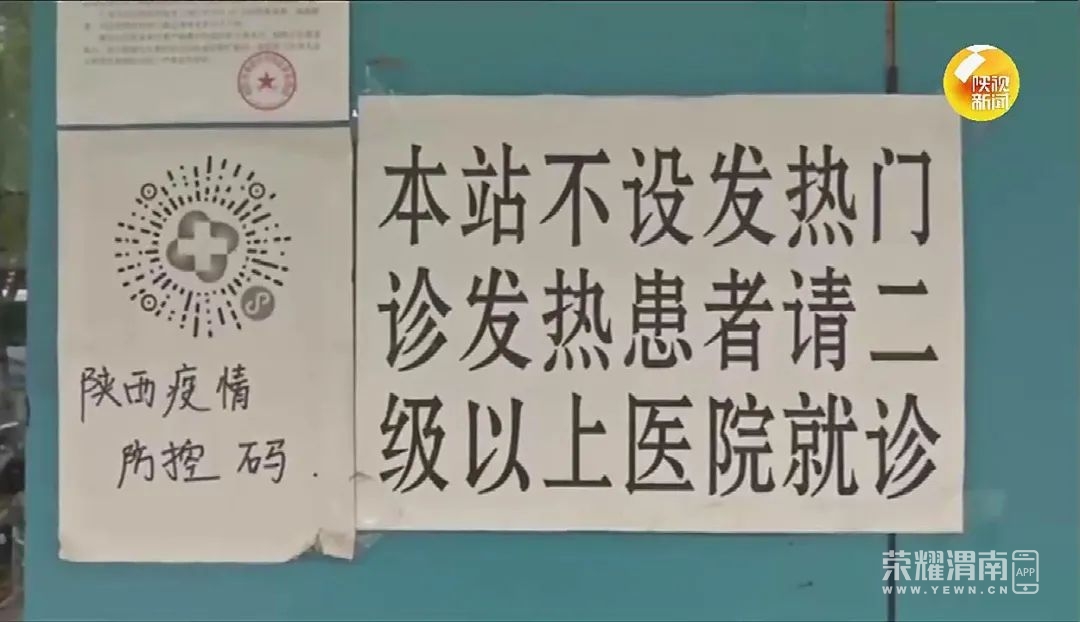 陕视
新闻
本站不设发热门
诊发热患者请二
级以上医院就诊
陕西疫情
防控码.
荣耀渭南
APP
WWW.YEWN.CN